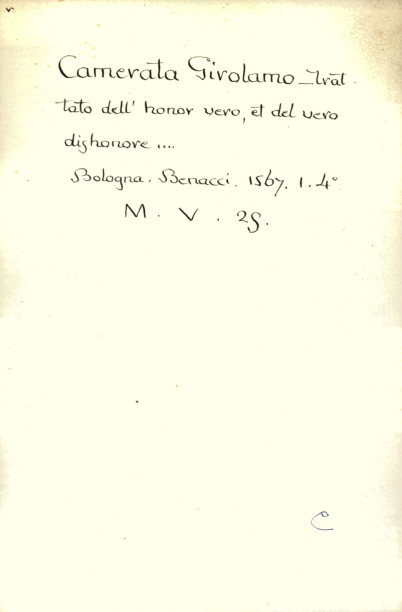 Camerata Girolamo - Trat-
tato dell' honor vero, et del vero
dishonore ....
Bologna. Benacci. 1567. 1. 4°
M. V. 25.
C